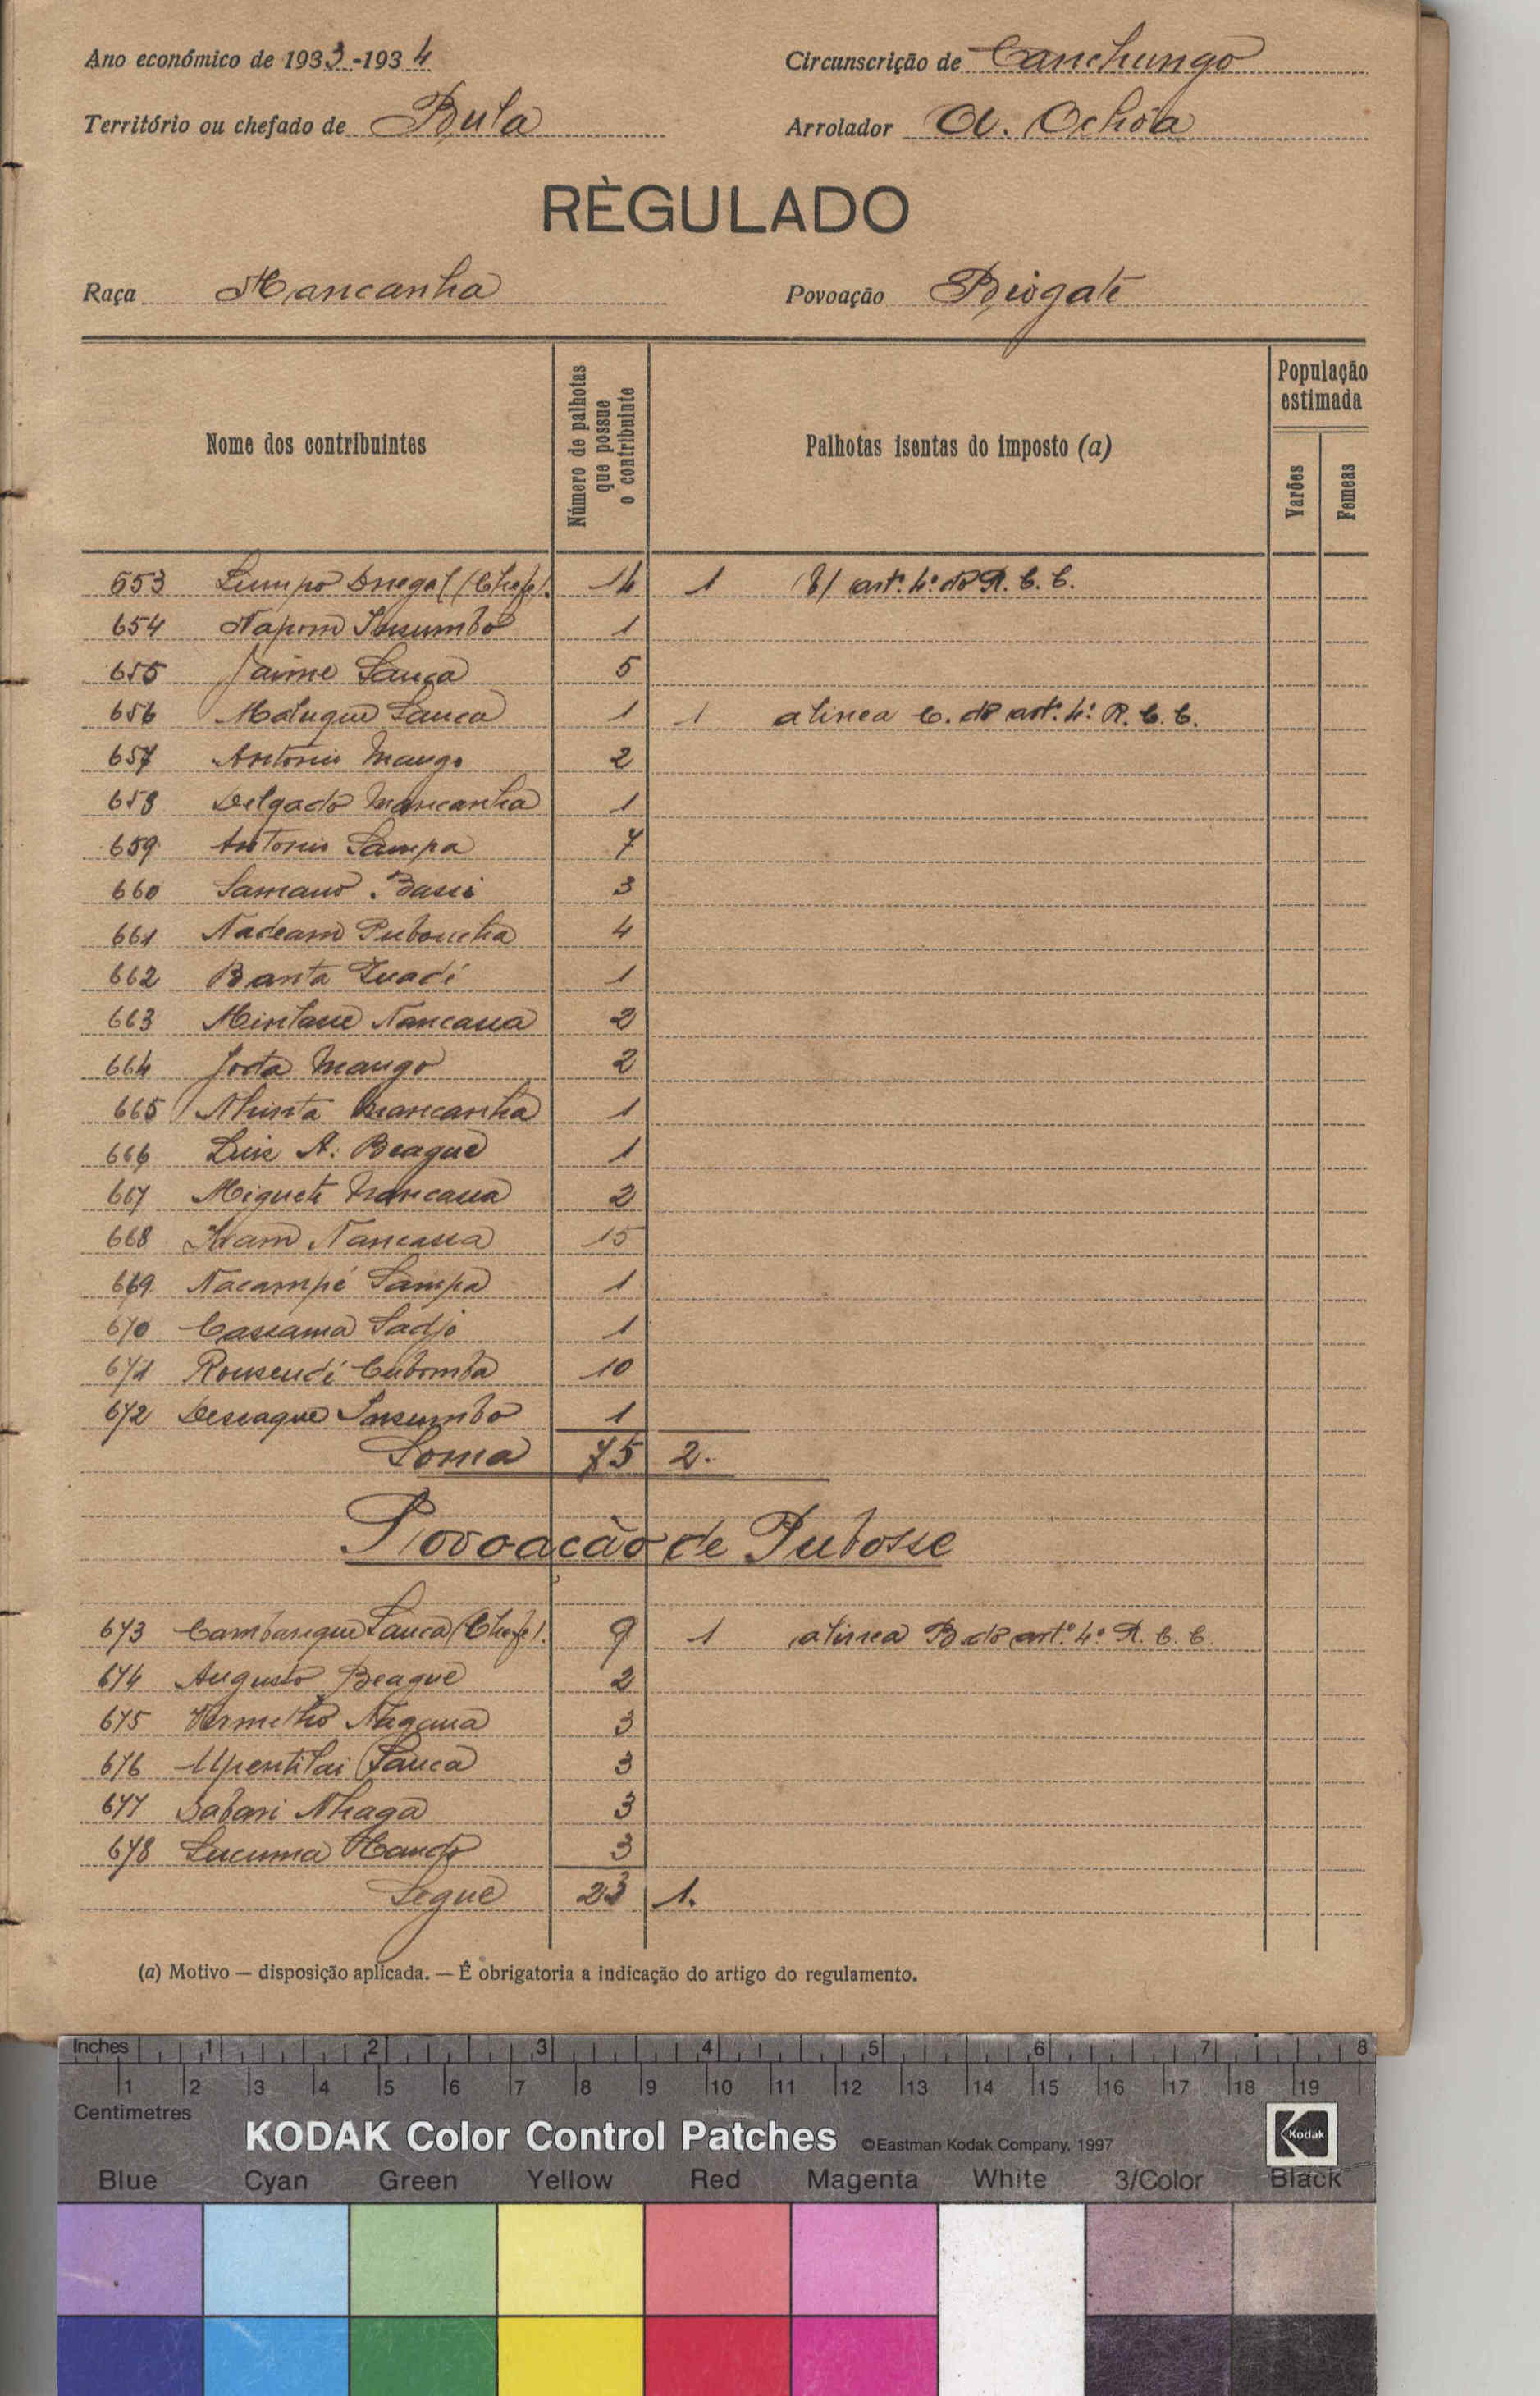 Ano económico de 1933-1934 Circunscrição de Canchungo
Território ou chefado de Bula Arrolador A. Ochôa
RÈGULADO
Raça Mancanha Povoação Biogate
Nome dos contribuintes
Número de palhotas que possue o contribuinte
Palhotas isentas do imposto (a)
População estimada
Varões
Femeas
653 (Chefe). 14 1 b/ artº. 4º. do R. C. C.
654 Napom Insumbo 1
655 Jaime Sanca 5
656 Matuque Sanca 1 1 alinea C. do artº. 4º. R. C. C.
657 Antonio Mango 2
658 Delgado Mancanha 1
659 Antonio Sampa 7
660 3
661 4
662 Banta 1
663 Nancassa 2
664 Jorta Mango 2
665 Nhinta Mancanha 1
666 Luis A. Beague 1
667 Miquete 2
668 Nancassa 15
669 Nacampé Sampa 1
670 Cassama Sadjo 1
671 10
672 Insumbo 1
Soma 75 2.
Povoacão de Pubosse
673 Sanca (Chefe). 9 1 alinea B do artº. 4º R. C. C.
674 Augusto Beague 2
675 Vermelho Nagana 3
676 Upentilai Sanca 3
677 Sabari Nhaga 3
678 Lucuma 3
Segue 23 1.
(a) Motivo — disposição aplicada. — É obrigatoria a indicação do artigo do regulamento.
Inches 1 2 3 4 5 6 7 8
1 2 3 4 5 6 7 8 9 10 11 12 13 14 15 16 17 18 19
Centimetres
KODAK Color Control Patches ©Eastman Kodak Company, 1997 Kodak
Blue Cyan Green Yellow Red Magenta White 3/Color Black